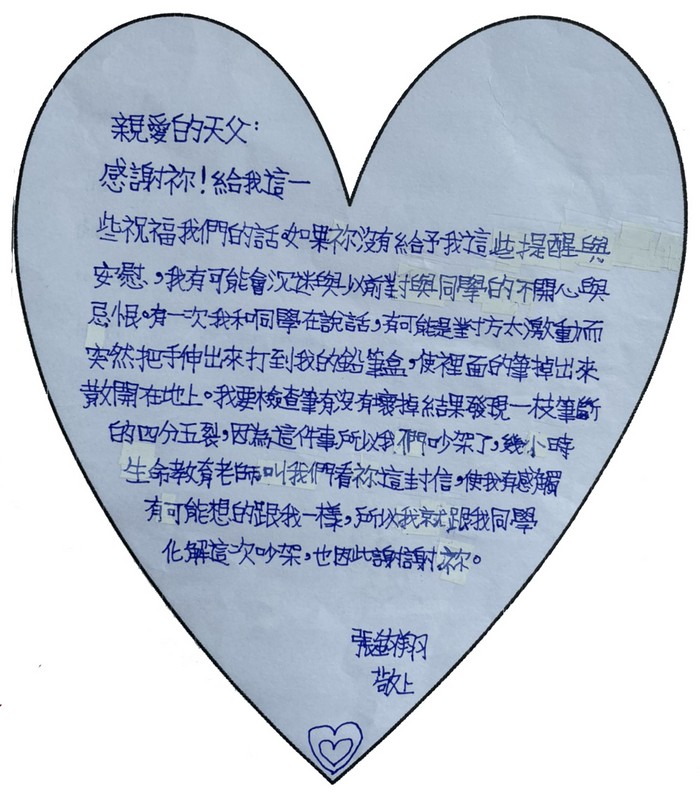 親愛的天父:
感謝祢!給我這一
些祝福我們的話如果祢沒有給予我這些提醒與
安慰,我有可能會沉迷與以前對與同學的不開心與
忌恨。有一次我和同學在說話,有可能是對方太激動而
突然把手伸出來打到我的鉛筆盒,使裡面的筆掉出來
散開在地上。我要檢查筆有沒有壞掉結果發現一枝筆斷
的四分五裂,因為這件事所以我們吵架了,幾小時
生命教育老師叫我們看祢這封信,使我有感觸
有可能想的跟我一樣,所以我就跟我同學
化解這次吵架,也因此謝謝祢。
張
敬上